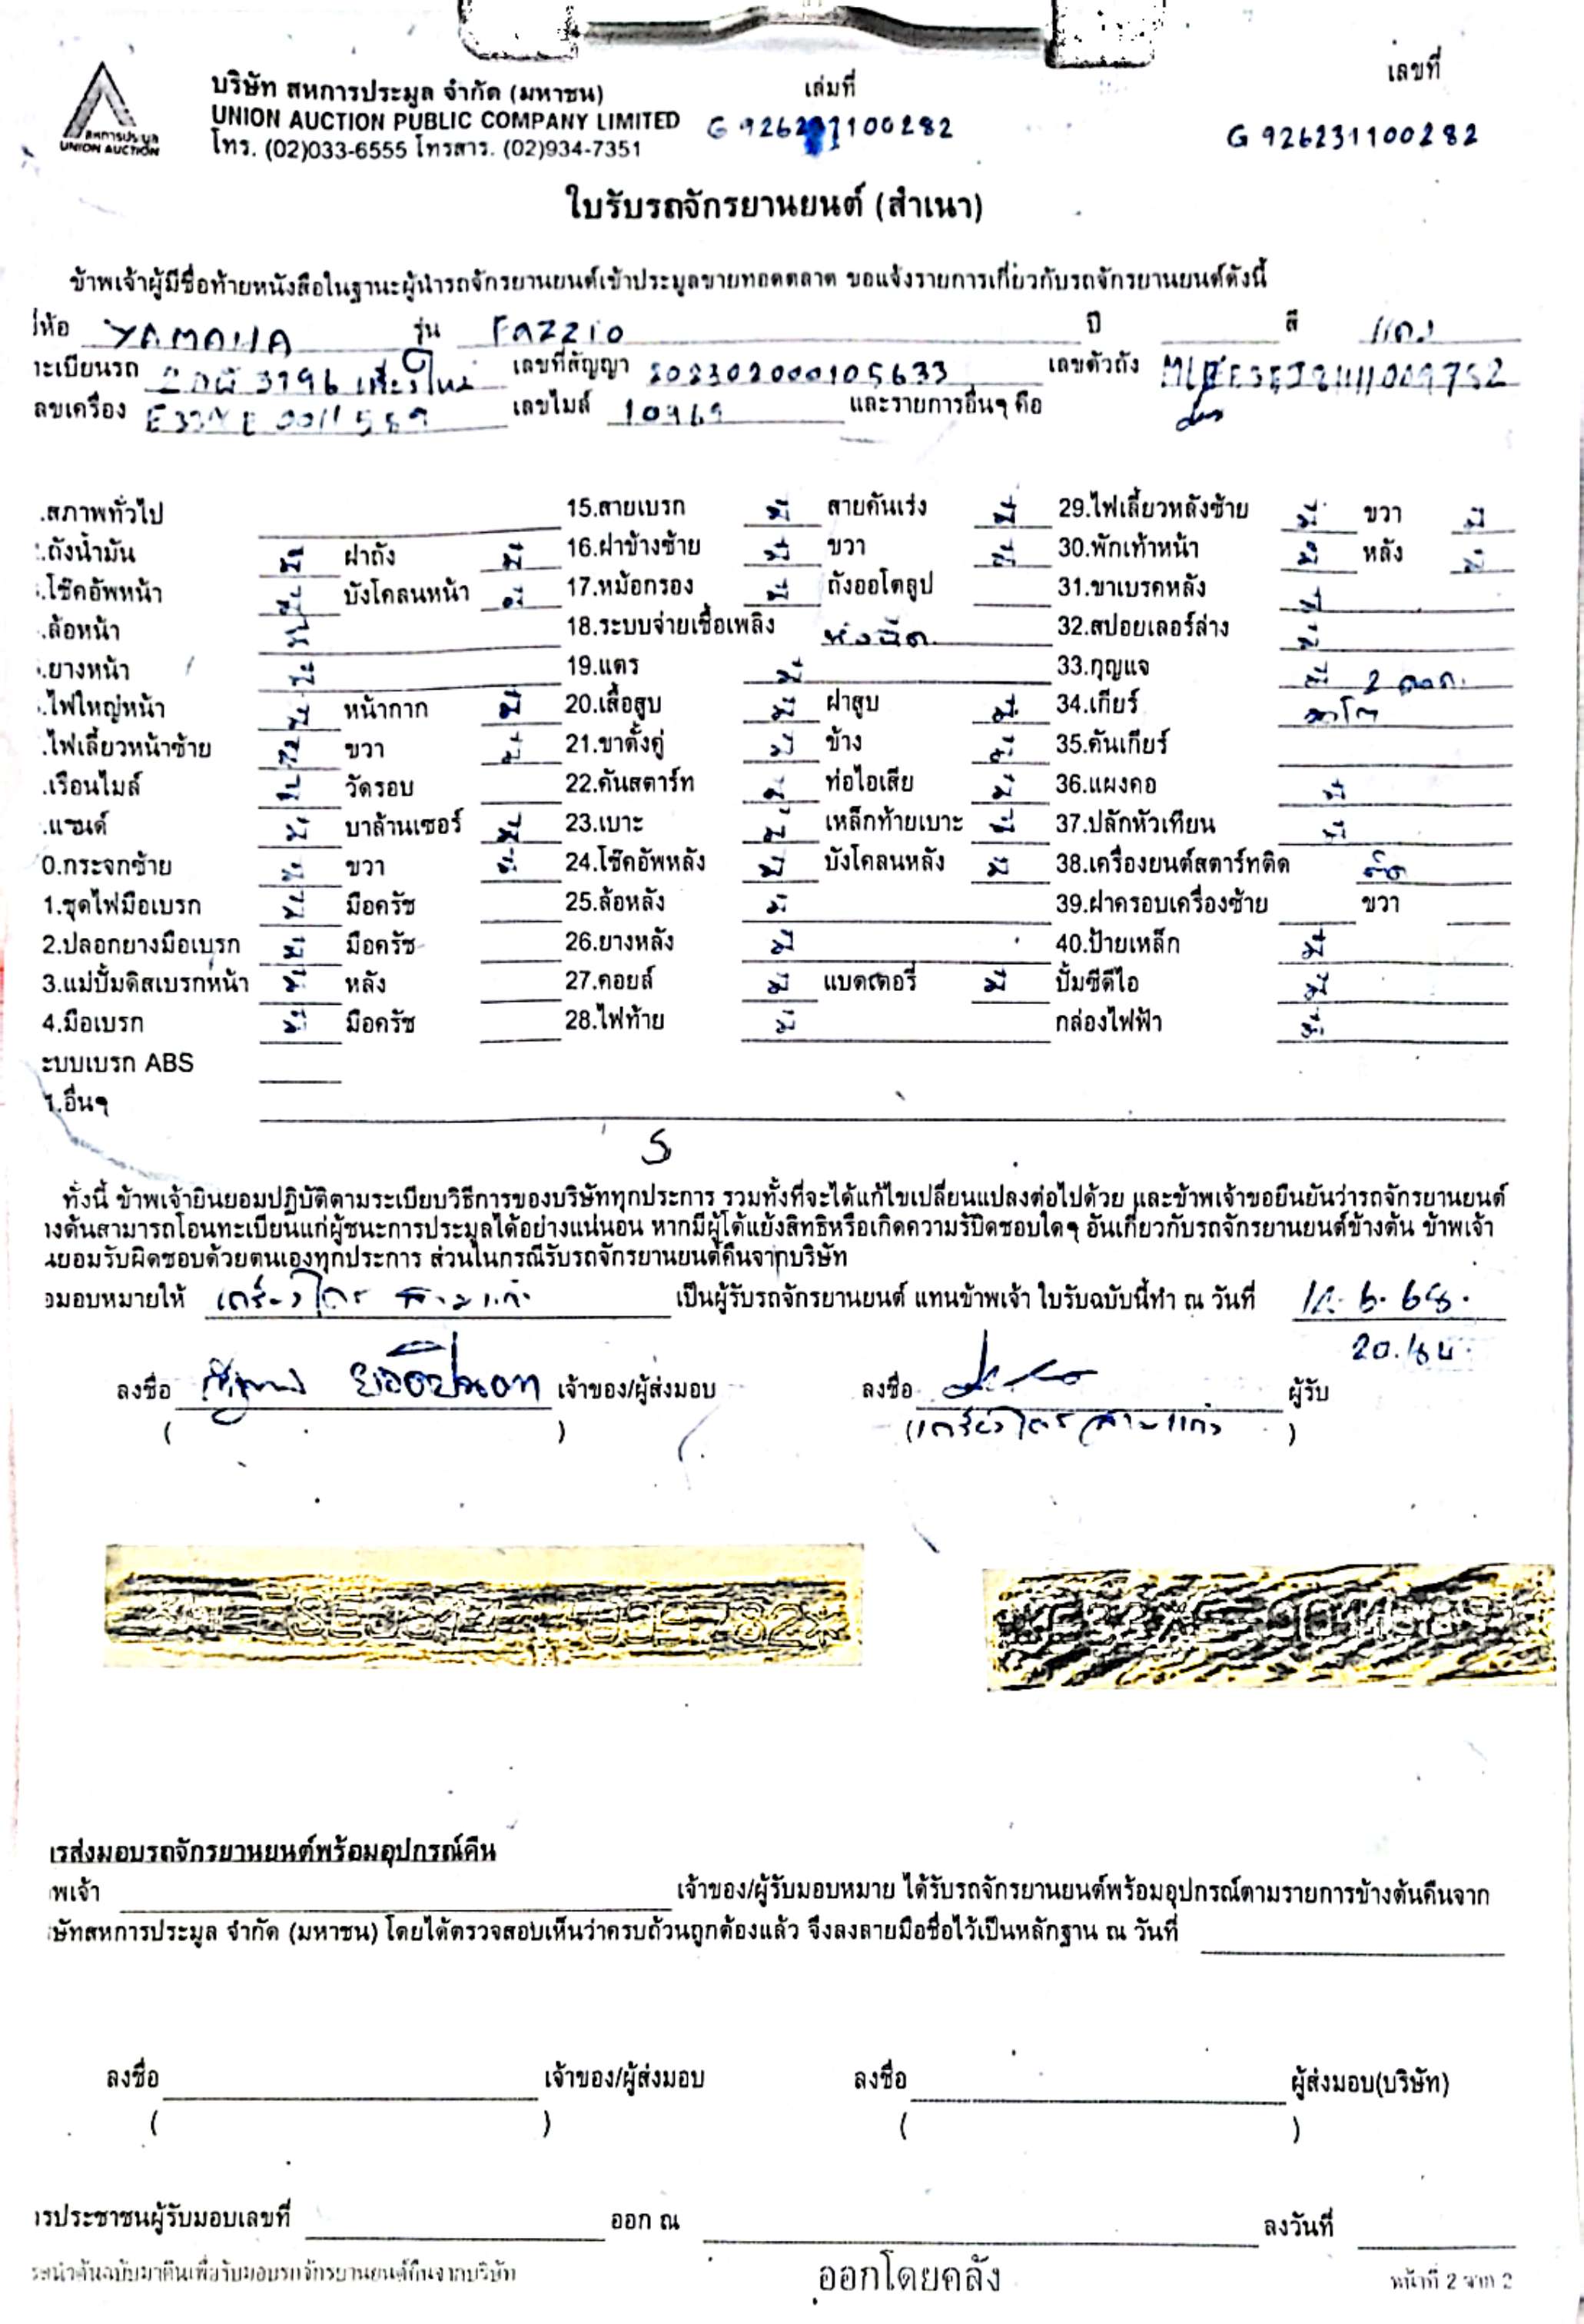 เลขที่
บริษัท สหการประมูล จำกัด (มหาชน) เล่มที่
UNION AUCTION PUBLIC COMPANY LIMITED
สหการประมูล
UNION AUCTION
โทร. (02)033-6555 โทรสาร. (02)934-7351
G 926231100282
ใบรับรถจักรยานยนต์ (สำเนา)
ข้าพเจ้าผู้มีชื่อท้ายหนังสือในฐานะผู้นำรถจักรยานยนต์เข้าประมูลขายทอดตลาด ขอแจ้งรายการเกี่ยวกับรถจักรยานยนต์ดังนี้
YAMAHA รุ่น FAZZIO ปี สี แดง
ะเบียนรถ 3796 เชียงใหม่ เลขที่สัญญา 202302000105633 เลขตัวถัง
ลขเครื่อง เลขไมล์ 10969 และรายการอื่นๆ คือ
.สภาพทั่วไป 15.สายเบรก มี สายคันเร่ง มี 29.ไฟเลี้ยวหลังซ้าย มี ขวา มี
.ถังน้ำมัน มี ฝาถัง มี 16.ฝาข้างซ้าย มี ขวา มี 30.พักเท้าหน้า มี หลัง มี
.โช๊คอัพหน้า มี บังโคลนหน้า มี 17.หม้อกรอง มี ถังออโตลูป 31.ขาเบรคหลัง มี
.ล้อหน้า มี 18.ระบบจ่ายเชื้อเพลิง หัวฉีด 32.สปอยเลอร์ล่าง มี
.ยางหน้า มี 19.แตร มี 33.กุญแจ มี 2 ดอก.
.ไฟใหญ่หน้า มี หน้ากาก มี 20.เสื้อสูบ มี ฝาสูบ มี 34.เกียร์ ออโต
.ไฟเลี้ยวหน้าซ้าย มี ขวา มี 21.ขาตั้งคู่ มี ข้าง มี 35.คันเกียร์
.เรือนไมล์ มี วัดรอบ 22.คันสตาร์ท มี ท่อไอเสีย มี 36.แผงคอ มี
.แฮนด์ มี บาล้านเซอร์ มี 23.เบาะ มี เหล็กท้ายเบาะ มี 37.ปลั๊กหัวเทียน มี
0.กระจกซ้าย มี ขวา มี 24.โช๊คอัพหลัง มี บังโคลนหลัง มี 38.เครื่องยนต์สตาร์ทติด ติด
1.ชุดไฟมือเบรก มี มือครัช 25.ล้อหลัง มี 39.ฝาครอบเครื่องซ้าย ขวา
2.ปลอกยางมือเบรก มี มือครัช 26.ยางหลัง มี 40.ป้ายเหล็ก มี
3.แม่ปั้มดิสเบรกหน้า มี หลัง 27.คอยล์ มี แบตเตอรี่ มี ปั้มซีดีไอ มี
4.มือเบรก มี มือครัช 28.ไฟท้าย มี กล่องไฟฟ้า มี
ะบบเบรก ABS
1.อื่นๆ
ทั้งนี้ ข้าพเจ้ายินยอมปฏิบัติตามระเบียบวิธีการของบริษัททุกประการ รวมทั้งที่จะได้แก้ไขเปลี่ยนแปลงต่อไปด้วย และข้าพเจ้าขอยืนยันว่ารถจักรยานยนต์
างต้นสามารถโอนทะเบียนแก่ผู้ชนะการประมูลได้อย่างแน่นอน หากมีผู้โต้แย้งสิทธิหรือเกิดความรับผิดชอบใดๆ อันเกี่ยวกับรถจักรยานยนต์ข้างต้น ข้าพเจ้า
นยอมรับผิดชอบด้วยตนเองทุกประการ ส่วนในกรณีรับรถจักรยานยนต์คืนจากบริษัท
อมอบหมายให้ เป็นผู้รับรถจักรยานยนต์ แทนข้าพเจ้า ใบรับฉบับนี้ทำ ณ วันที่
ลงชื่อ เจ้าของ/ผู้ส่งมอบ ลงชื่อ ผู้รับ
( ) ( )
ารส่งมอบรถจักรยานยนต์พร้อมอุปกรณ์คืน
พเจ้า เจ้าของ/ผู้รับมอบหมาย ได้รับรถจักรยานยนต์พร้อมอุปกรณ์ตามรายการข้างต้นคืนจาก
ษัทสหการประมูล จำกัด (มหาชน) โดยได้ตรวจสอบเห็นว่าครบถ้วนถูกต้องแล้ว จึงลงลายมือชื่อไว้เป็นหลักฐาน ณ วันที่
ลงชื่อ เจ้าของ/ผู้ส่งมอบ ลงชื่อ ผู้ส่งมอบ(บริษัท)
( ) ( )
รประชาชนผู้รับมอบเลขที่ ออก ณ ลงวันที่
ะนำต้นฉบับมาคืนเพื่อรับมอบรถจักรยานยนต์คืนจากบริษัท ออกโดยคลัง หน้าที่ 2 จาก 2